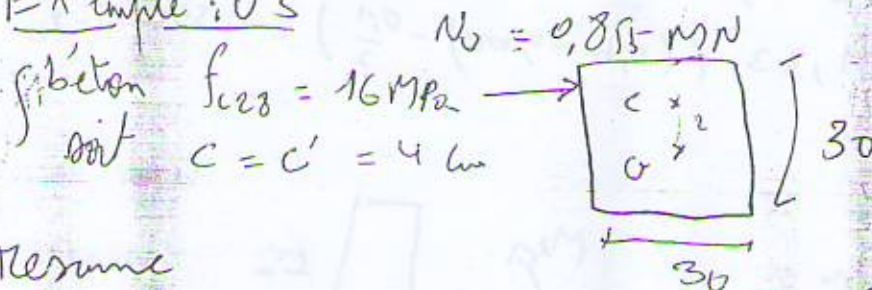 Exemple : 03
Nu = 0,855 MN
béton fc28 = 16 MPa
soit c = c' = 4 cm
C
2
G
30
Resume
30